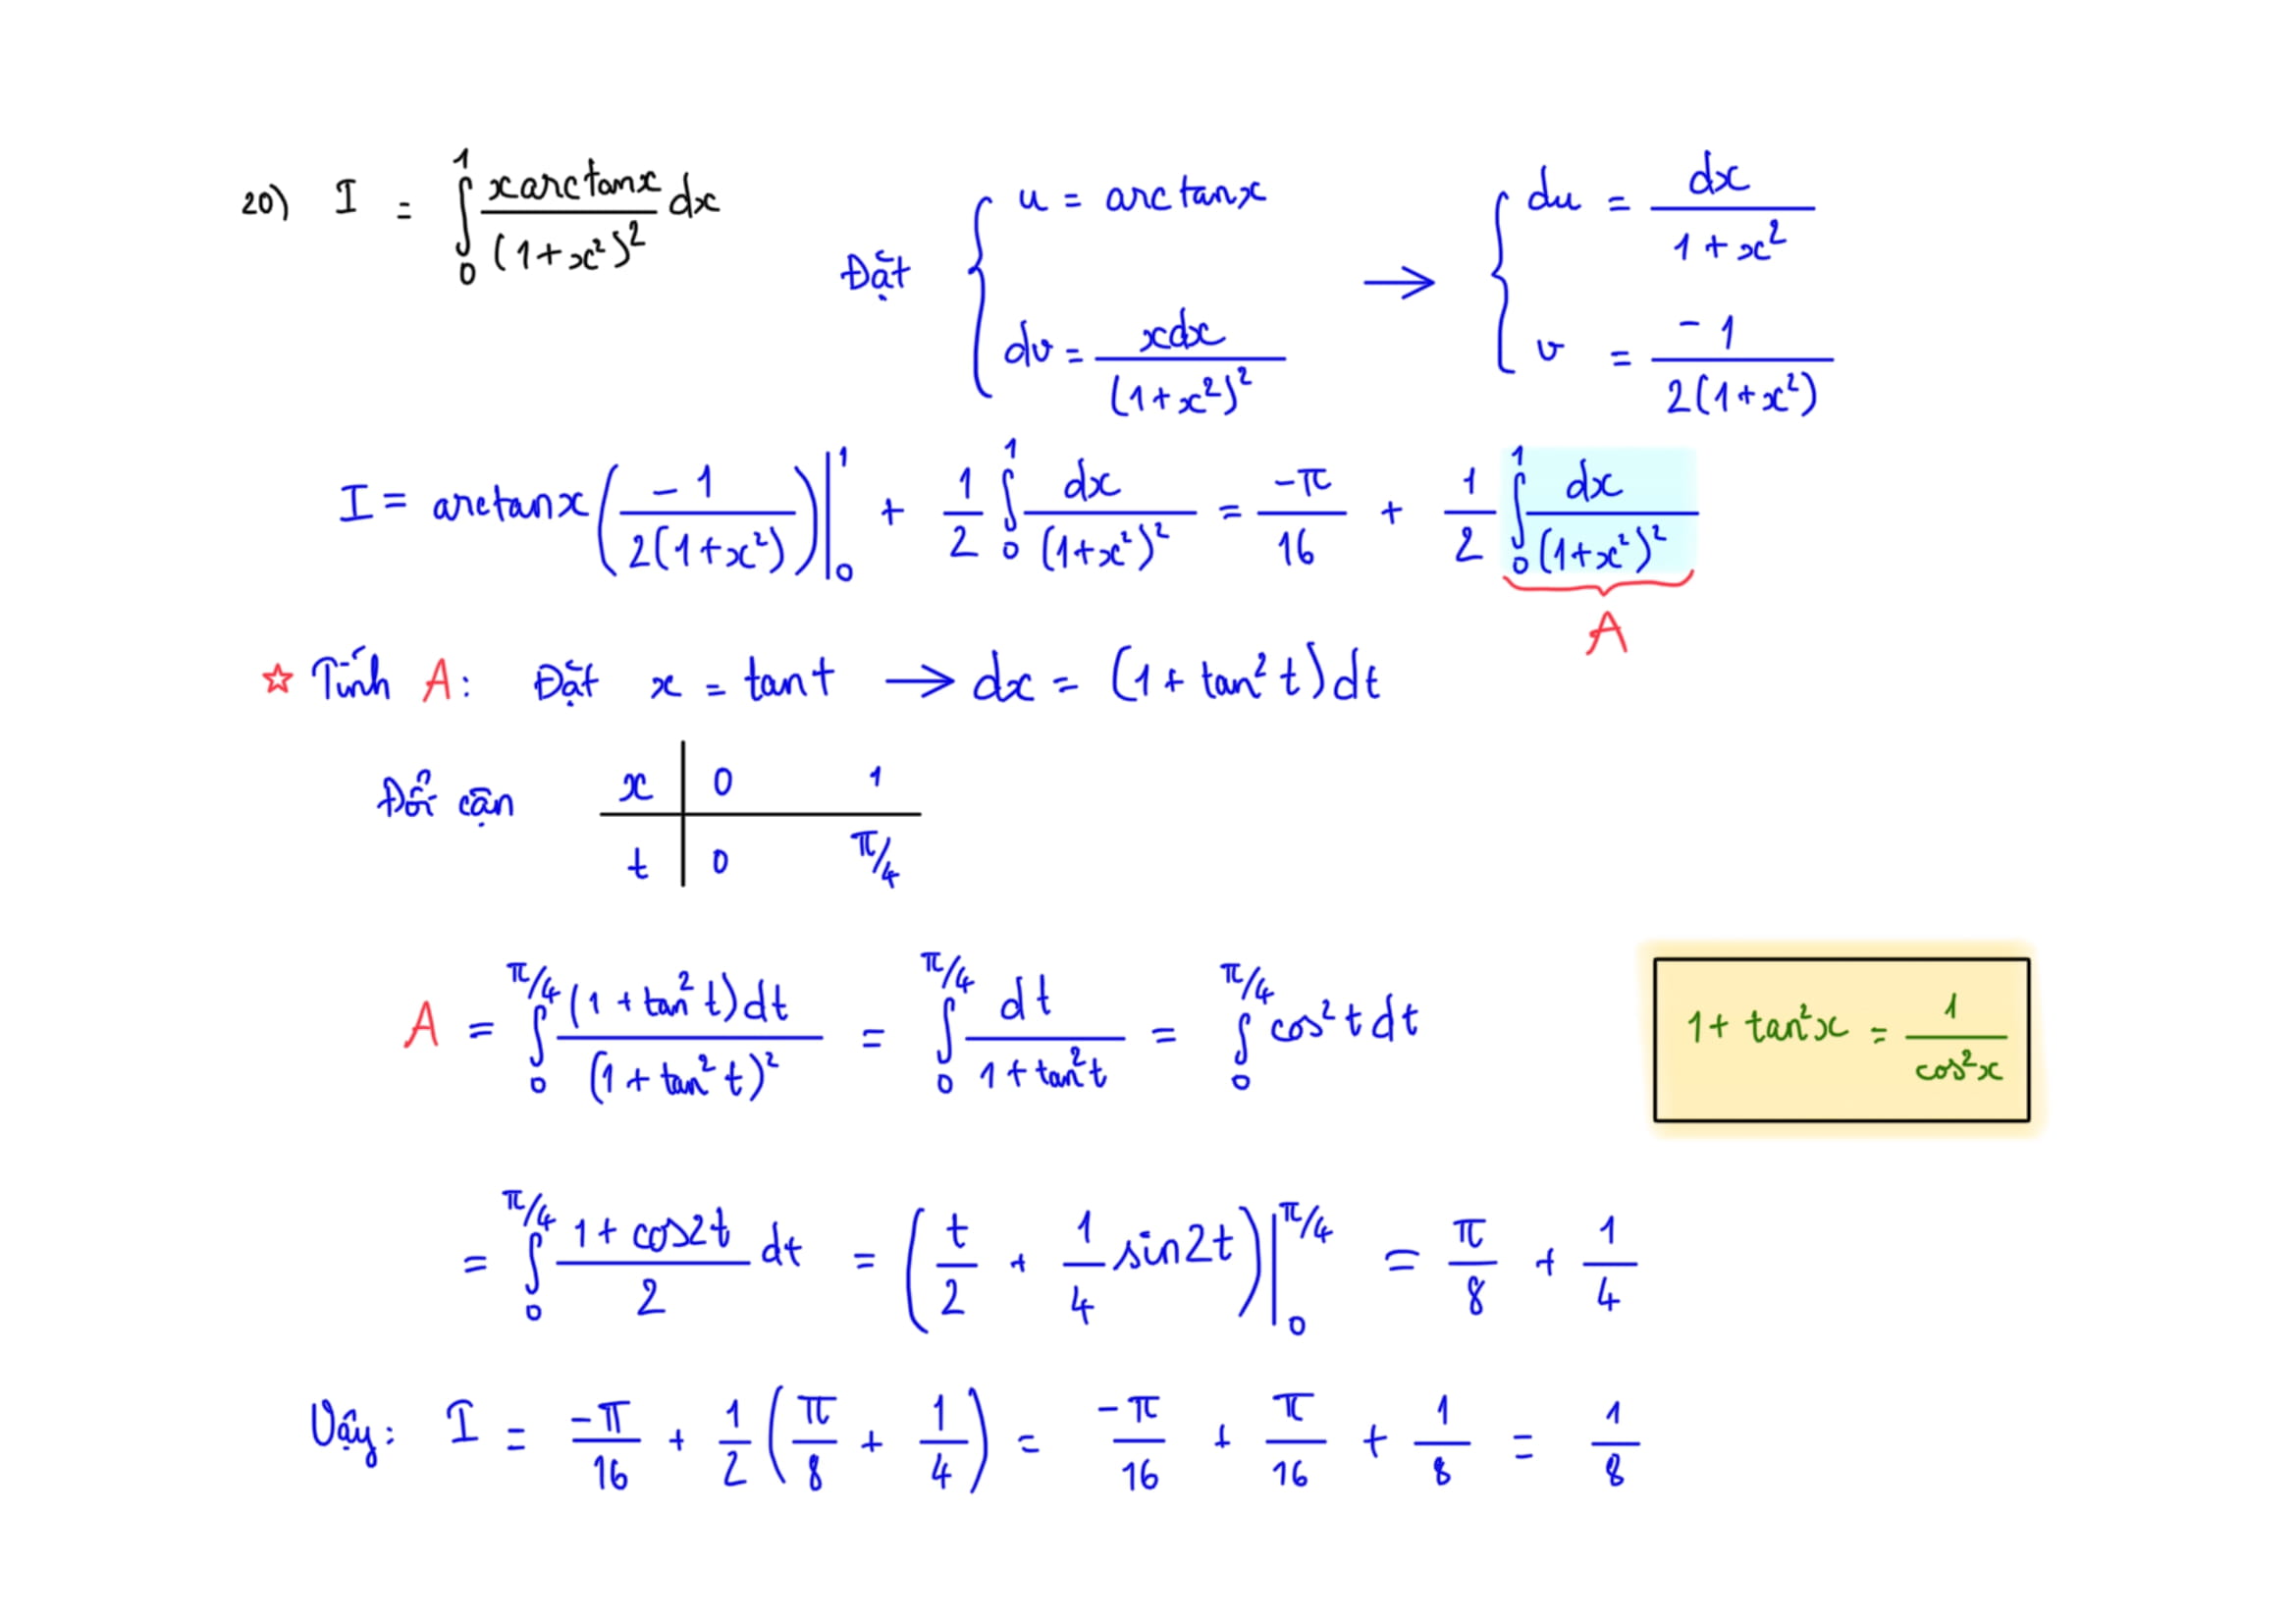 20) I = ∫₀¹ \frac{x arctanx}{(1+x²)²} dx Đặt { u = arctanx ; dv = \frac{xdx}{(1+x²)²} → { du = \frac{dx}{1+x²} ; v = \frac{-1}{2(1+x²)}
I = arctanx (\frac{-1}{2(1+x²)}) |₀¹ + \frac{1}{2} ∫₀¹ \frac{dx}{(1+x²)²} = \frac{-π}{16} + \frac{1}{2} ∫₀¹ \frac{dx}{(1+x²)²}
A
☆ Tính A: Đặt x = tant → dx = (1 + tan² t) dt
Đổi cận x | 0 1
t | 0 π/4
A = ∫₀^{π/4} \frac{(1 + tan² t) dt}{(1 + tan² t)²} = ∫₀^{π/4} \frac{dt}{1 + tan² t} = ∫₀^{π/4} cos² t dt
1 + tan² x = \frac{1}{cos² x}
= ∫₀^{π/4} \frac{1 + cos2t}{2} dt = (\frac{t}{2} + \frac{1}{4} sin2t) |₀^{π/4} = \frac{π}{8} + \frac{1}{4}
Vậy: I = \frac{-π}{16} + \frac{1}{2} (\frac{π}{8} + \frac{1}{4}) = \frac{-π}{16} + \frac{π}{16} + \frac{1}{8} = \frac{1}{8}